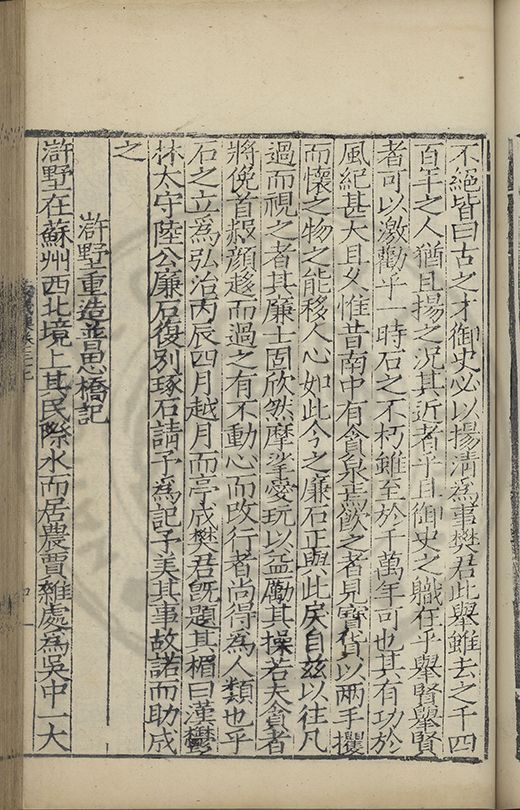 不絕皆曰古之才御史必以揚清為事樊君此舉雖去之千四
百年之人猶且揚之况其近者乎且御史之職在乎舉賢舉賢
者可以激勸乎一時石之不朽雖至於千萬年可也其有功於
風紀甚大且久惟昔南中有貪泉焉飲之者見寶貨以兩手攫
而懷之物之能移人心如此今之廉石正與此戾自兹以往凡
過而視之者其廉士固欣然摩挲愛玩以益勵其操若夫貪者
將俛首赧顔趍而過之有不動心而改行者尚得為人類也乎
石之立爲弘治丙辰四月越月而亭成樊君旣題其楣曰漢鬱
林太守陸公廉石復别琢石請予爲記予美其事故諾而助成
之
滸墅重造普思橋記
滸墅在蘇州西北境上其民際水而居農賈雜處爲吳中一大